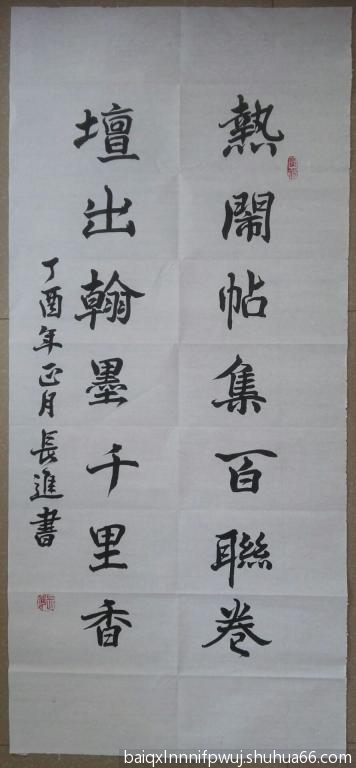 熱鬧帖集百聯卷
壇出翰墨千里香
丁酉年正月長進書
baiqxlnnnifpwuj.shuhua66.com